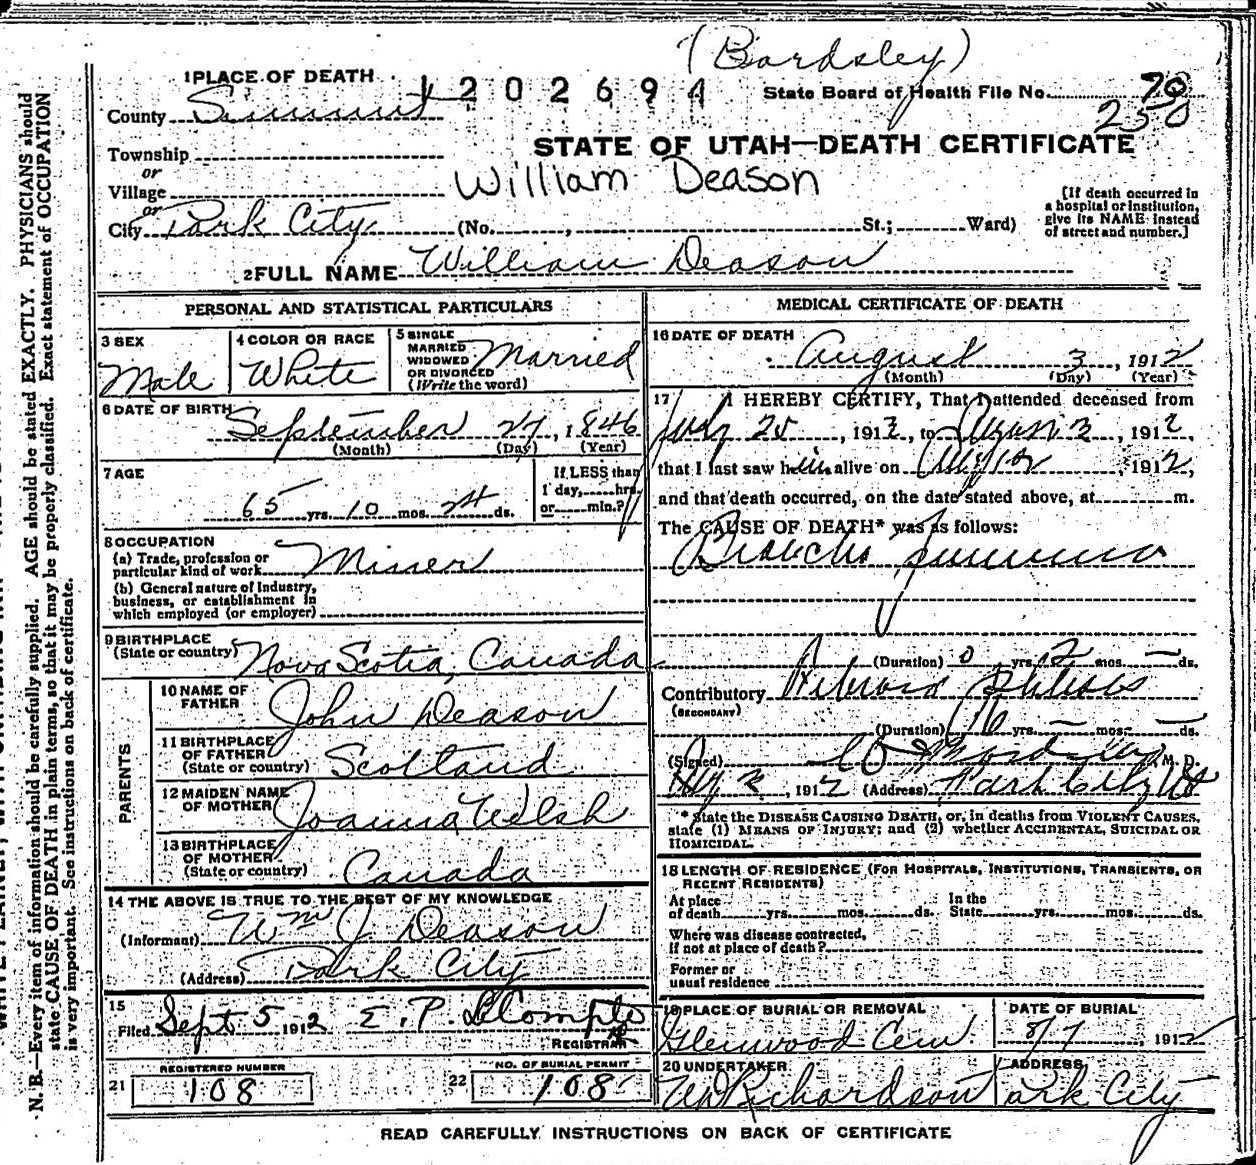 (Bardsley)
1 PLACE OF DEATH
1202694
State Board of Health File No. 70
250
County Summit
STATE OF UTAH—DEATH CERTIFICATE
Township
or
Village
William Deason
or
City Park City (No. , St.; Ward)
[If death occurred in a hospital or institution, give its NAME instead of street and number.]
2 FULL NAME William Deason
PERSONAL AND STATISTICAL PARTICULARS
3 SEX
Male
4 COLOR OR RACE
White
5 SINGLE MARRIED WIDOWED OR DIVORCED (Write the word)
Married
6 DATE OF BIRTH
September 27, 1846
(Month) (Day) (Year)
7 AGE
65 yrs. 10 mos. ds.
If LESS than 1 day, hrs. or min.?
8 OCCUPATION
(a) Trade, profession or particular kind of work Miner
(b) General nature of Industry, business, or establishment in which employed (or employer)
9 BIRTHPLACE
(State or country) Nova Scotia, Canada
PARENTS
10 NAME OF FATHER John Deason
11 BIRTHPLACE OF FATHER (State or country) Scotland
12 MAIDEN NAME OF MOTHER Joanna Welsh
13 BIRTHPLACE OF MOTHER (State or country) Canada
14 THE ABOVE IS TRUE TO THE BEST OF MY KNOWLEDGE
(Informant) Wm J. Deason
(Address) Park City
15
Filed Sept 5 1912 E. P.
REGISTRAR
21 REGISTERED NUMBER 108
22 NO. OF BURIAL PERMIT 108
MEDICAL CERTIFICATE OF DEATH
16 DATE OF DEATH
August 3, 1912
(Month) (Day) (Year)
17 I HEREBY CERTIFY, That I attended deceased from
July 25, 1912, to 3, 1912,
that I last saw him alive on , 1912,
and that death occurred, on the date stated above, at m.
The CAUSE OF DEATH* was as follows:
Broncho
(Duration) 0 yrs. 2 mos. — ds.
Contributory
(SECONDARY)
(Duration) yrs. — mos. — ds.
(Signed) M. D.
, 1912 (Address) Park City Ut
* State the DISEASE CAUSING DEATH, or, in deaths from VIOLENT CAUSES,
state (1) MEANS OF INJURY; and (2) whether ACCIDENTAL, SUICIDAL OR
HOMICIDAL.
18 LENGTH OF RESIDENCE (FOR HOSPITALS, INSTITUTIONS, TRANSIENTS, OR
RECENT RESIDENTS)
At place of death yrs. mos. ds. In the State yrs. mos. ds.
Where was disease contracted,
if not at place of death?
Former or
usual residence
19 PLACE OF BURIAL OR REMOVAL
Glenwood Cem.
DATE OF BURIAL
8/7, 1912
20 UNDERTAKER
Richardson
ADDRESS
Park City
READ CAREFULLY INSTRUCTIONS ON BACK OF CERTIFICATE
N. B.—Every item of information should be carefully supplied. AGE should be stated EXACTLY. PHYSICIANS should
state CAUSE OF DEATH in plain terms, so that it may be properly classified. Exact statement of OCCUPATION
is very important. See instructions on back of certificate.